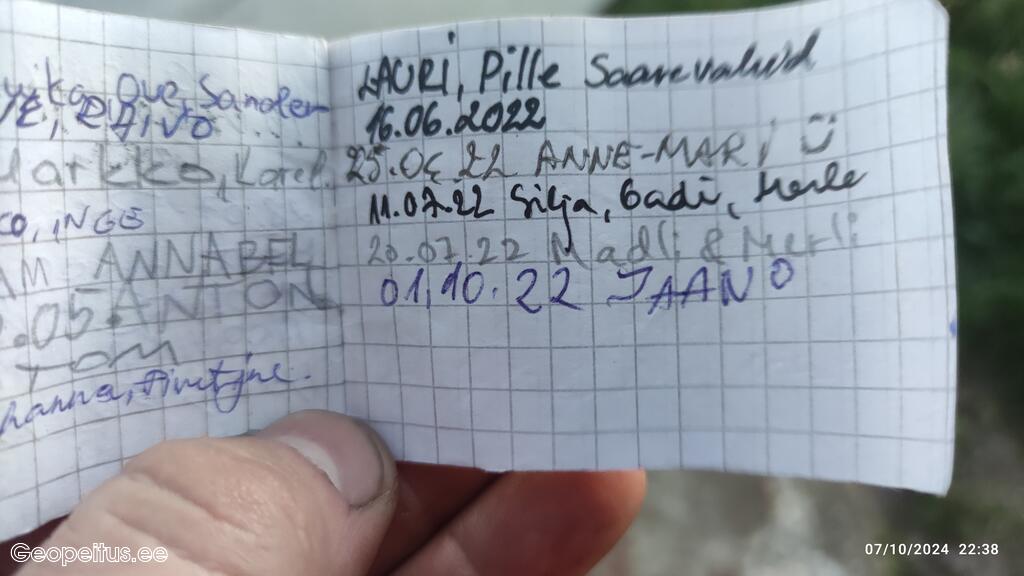 Ove, Sander
RAIVO
Markko, Karel.
INGE
ANNABEL
.05. ANTON
TOM
hanna,
LAURI, Pille Saarevalud
16.06.2022
25.06 22 ANNE-MARI
11.07.22 Silja, Gadi, Merle
20.07.22 Madli & Merli
01,10.22 JAANO
Geopeitus.ee
07/10/2024 22:38